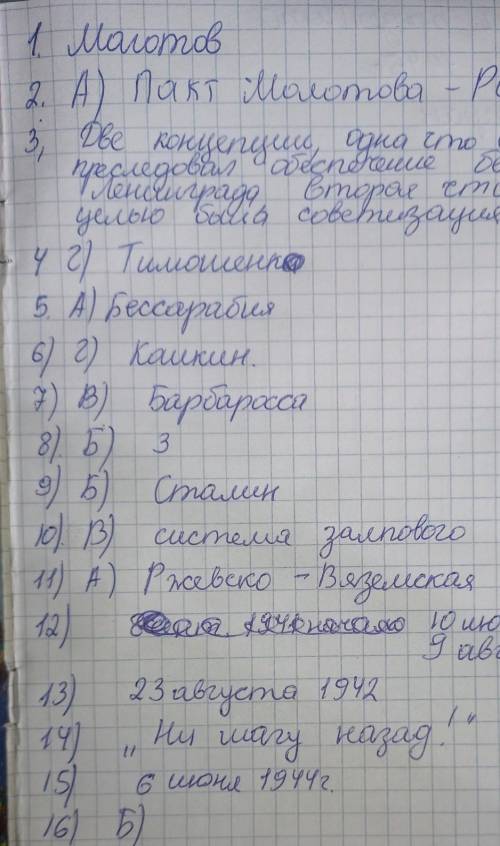 1. Молотов
2. А) Пакт Молотова –
3, Две концепции, одна что
преследовал обеспечение
Ленинграда, вторая
целью была советизация
4 Г) Тимошенко
5. А) Бессарабия
6) Г) Кашкин.
7) В) Барбаросса
8). Б) 3
9) Б) Сталин
10). В) система залпового
11) А) Ржевско – Вяземская
12) 10
9
13) 23 августа 1942
14) „Ни шагу назад!"
15) 6 июня 1944г.
16) Б)